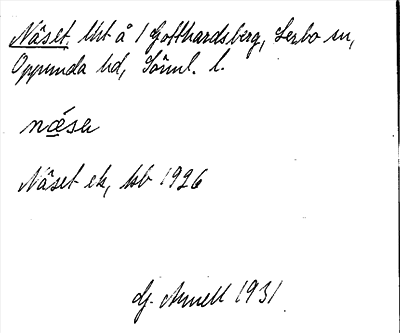 Näset, lht å 1 Gotthardsberg, Lerbo sn,
Oppunda hd, Söml. l.
næ̀sa
Näset ek, kb 1926
Gj. Arnell 1931